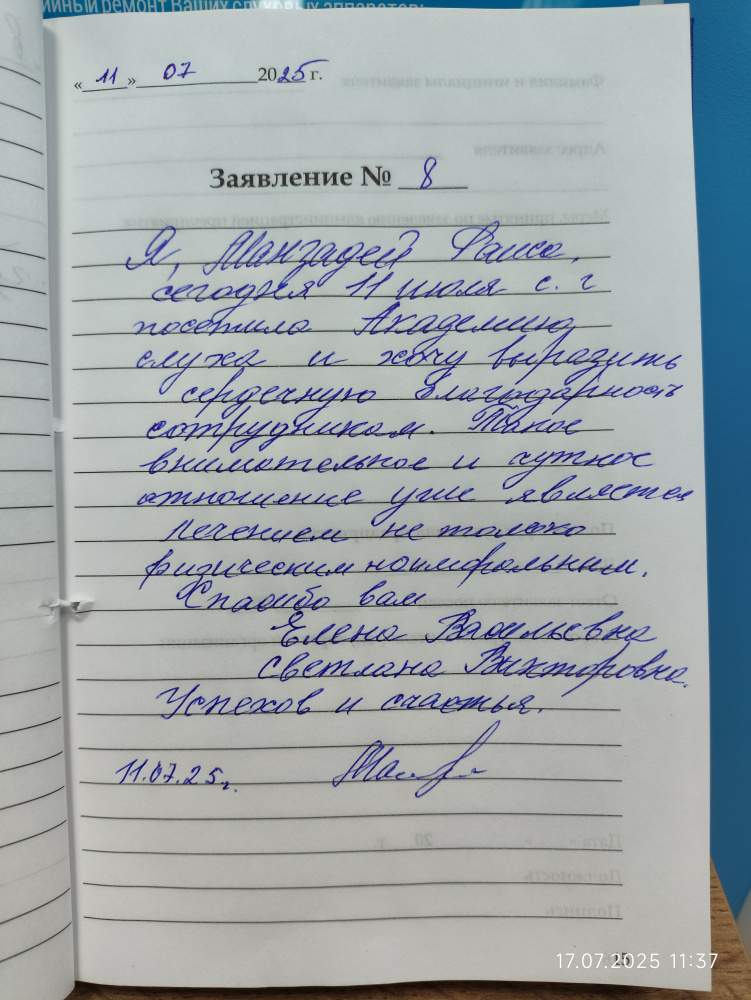 ийный ремонт Ваших слуховых аппаратов
«11» 07 2025 г.
Заявление № 8
Я, Манзадей Раиса,
сегодня 11 июля с. г
посетила Академию
слуха и хочу выразить
сердечную благодарность
сотрудникам. Такое
внимательное и чуткое
отношение уже является
лечением не только
физическим но и моральным.
Спасибо вам
Елена Васильевна
Светлана Викторовна.
Успехов и счастья.
11.07.25г.
17.07.2025 11:37